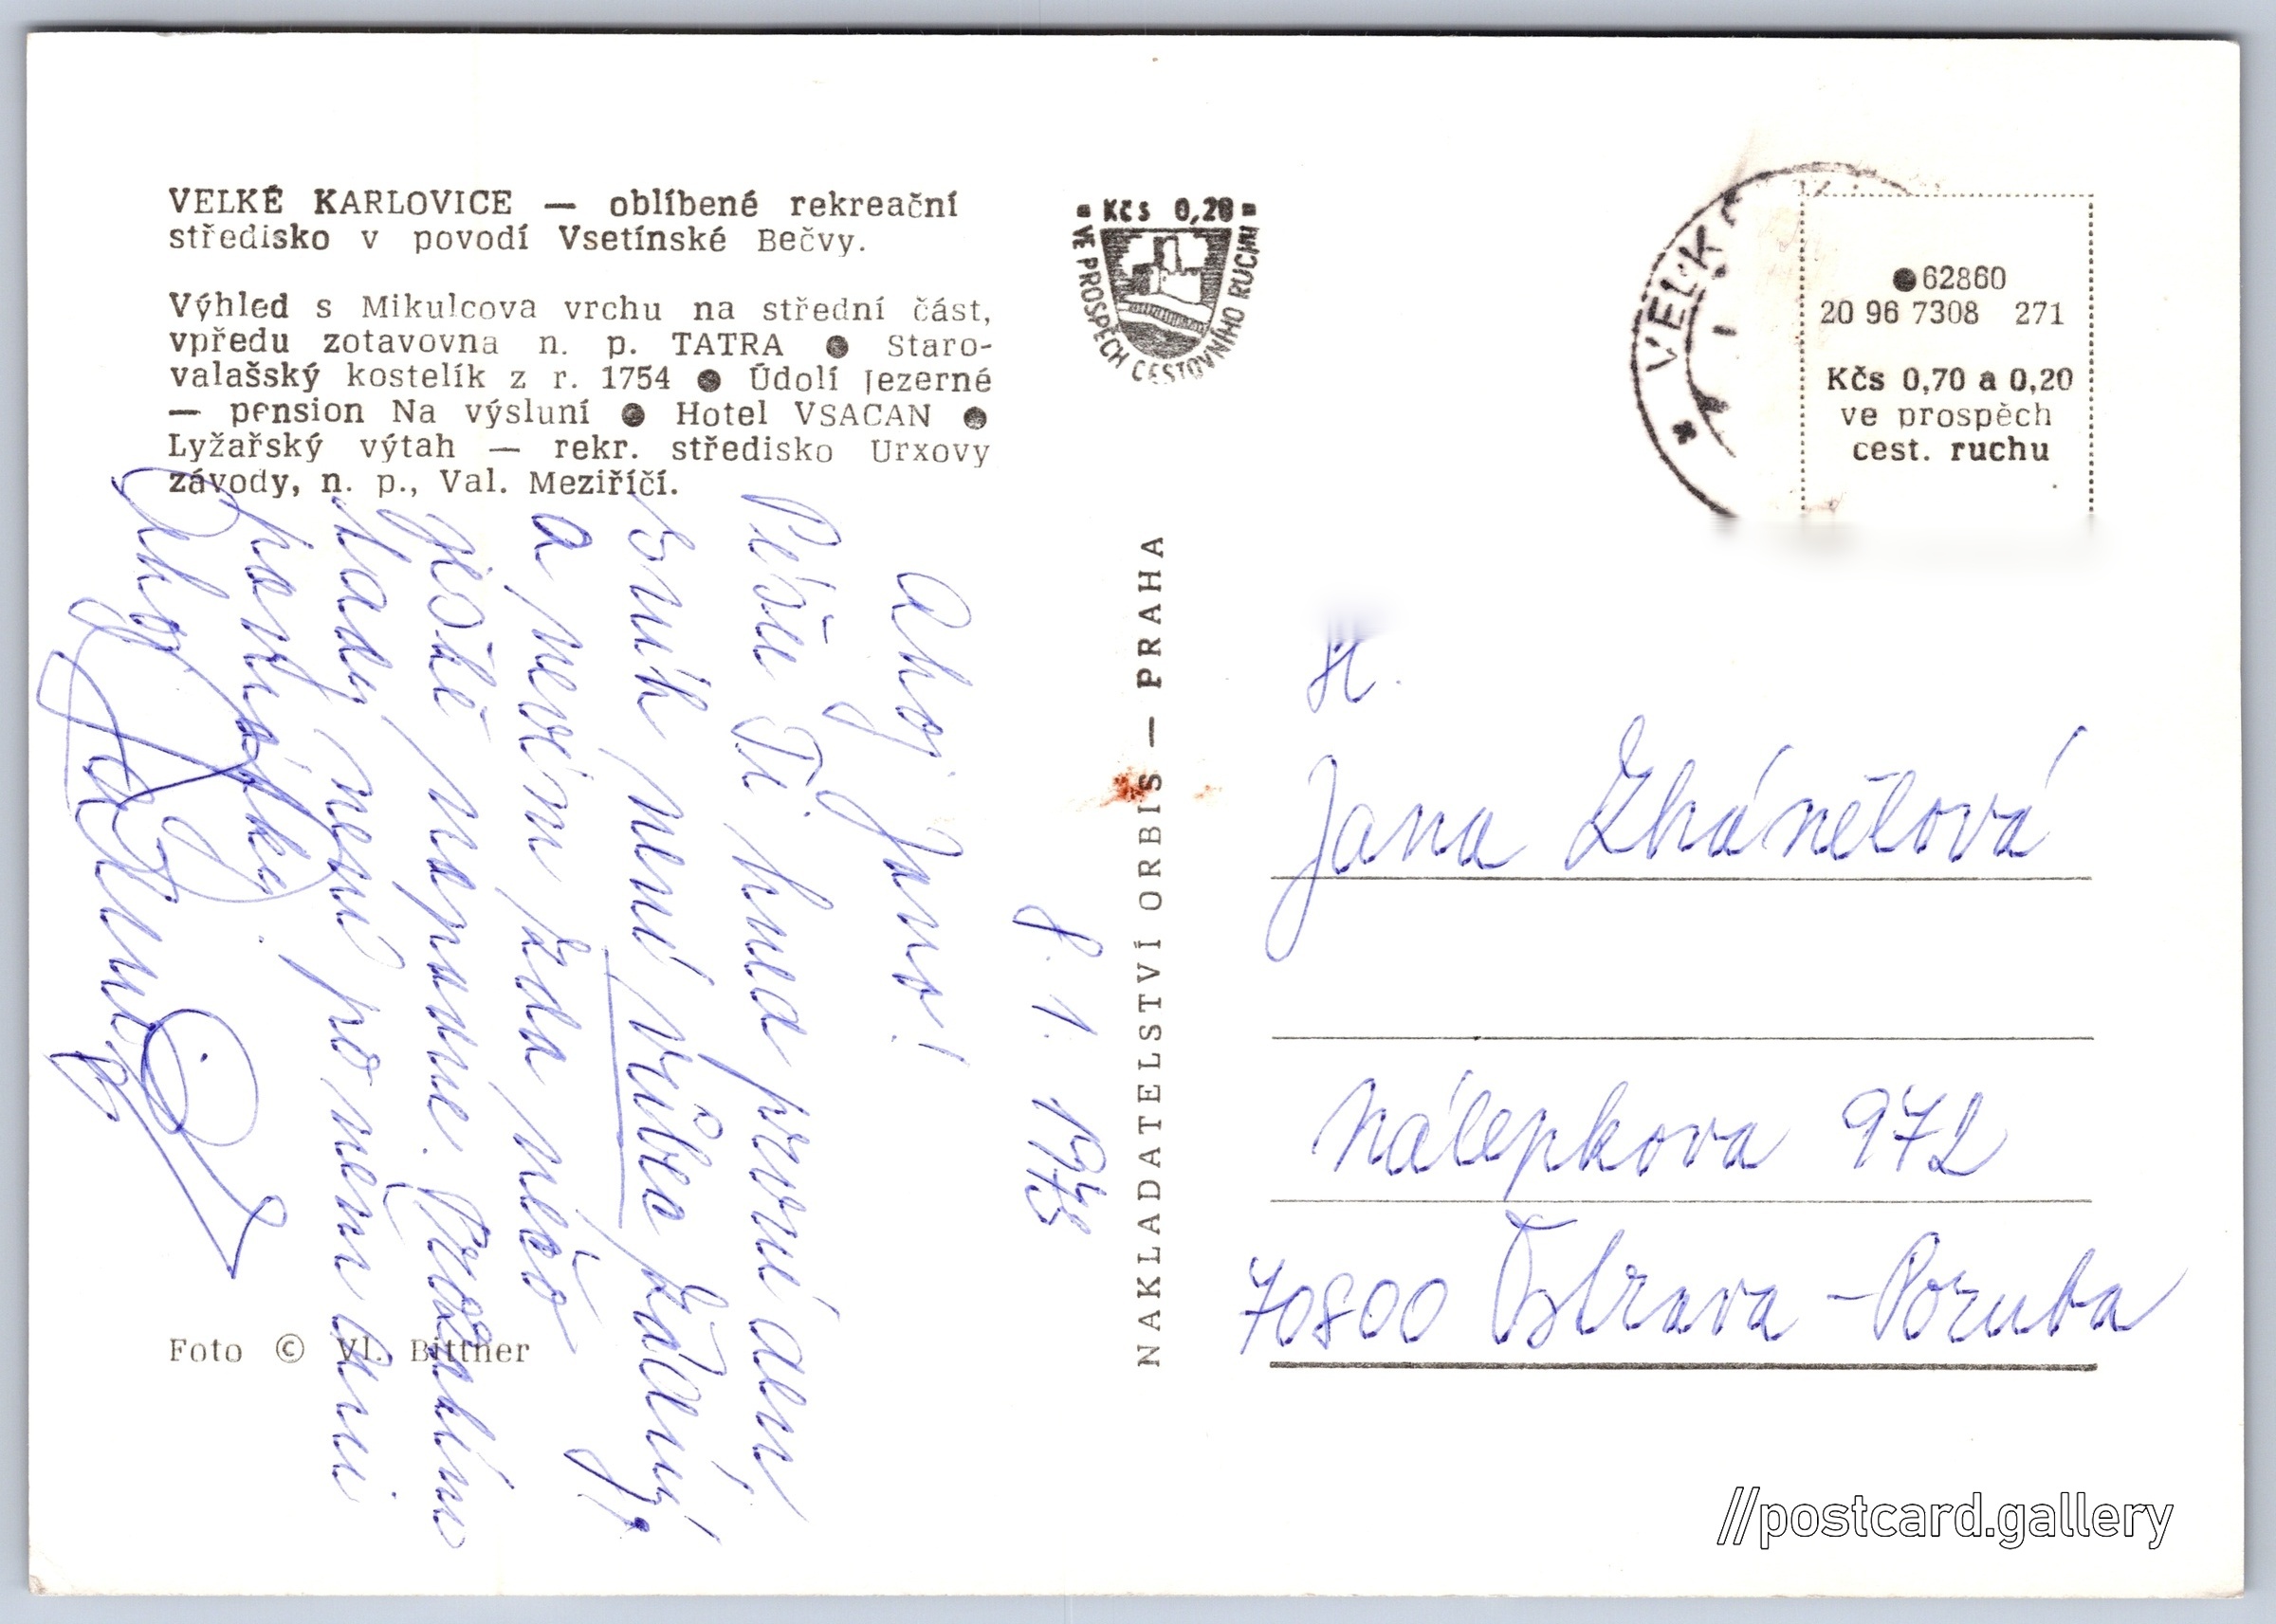 VELKÉ KARLOVICE — oblíbené rekreační
středisko v povodí Vsetínské Bečvy.
Výhled s Mikulcova vrchu na střední část,
vpředu zotavovna n. p. TATRA ● Staro-
valašský kostelík z r. 1754 ● Údolí Jezerné
— pension Na výsluní ● Hotel VSACAN ●
Lyžařský výtah — rekr. středisko Urxovy
závody, n. p., Val. Meziříčí.
Kčs 0,20
VE PROSPĚCH CESTOVNÍHO RUCHU
VELK
●62860
20 96 7308 271
Kčs 0,70 a 0,20
ve prospěch
cest. ruchu
8. 1. 1975
Ahoj Jano!
Píšu Ti hned první den,
sníh není vůbec žádný
a nevím zda něco
ještě napadne.
tady není po něm ani
památka.
Ahoj
NAKLADATELSTVÍ ORBIS — PRAHA
Jana Zhánělová
Nálepkova 972
70800 Ostrava - Poruba
Foto © Vl. Bittner
//postcard.gallery